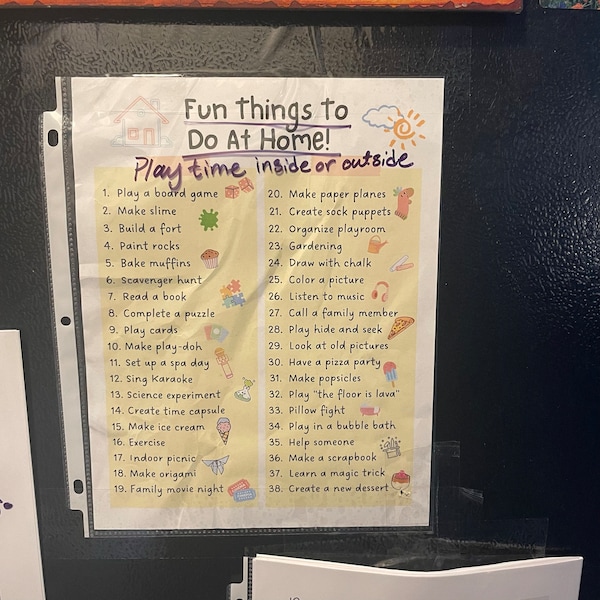 Fun Things to
Do At Home!
Play time inside or outside
1. Play a board game
2. Make slime
3. Build a fort
4. Paint rocks
5. Bake muffins
6. Scavenger hunt
7. Read a book
8. Complete a puzzle
9. Play cards
10. Make play-doh
11. Set up a spa day
12. Sing Karaoke
13. Science experiment
14. Create time capsule
15. Make ice cream
16. Exercise
17. Indoor picnic
18. Make origami
19. Family movie night
20. Make paper planes
21. Create sock puppets
22. Organize playroom
23. Gardening
24. Draw with chalk
25. Color a picture
26. Listen to music
27. Call a family member
28. Play hide and seek
29. Look at old pictures
30. Have a pizza party
31. Make popsicles
32. Play "the floor is lava"
33. Pillow fight
34. Play in a bubble bath
35. Help someone
36. Make a scrapbook
37. Learn a magic trick
38. Create a new dessert